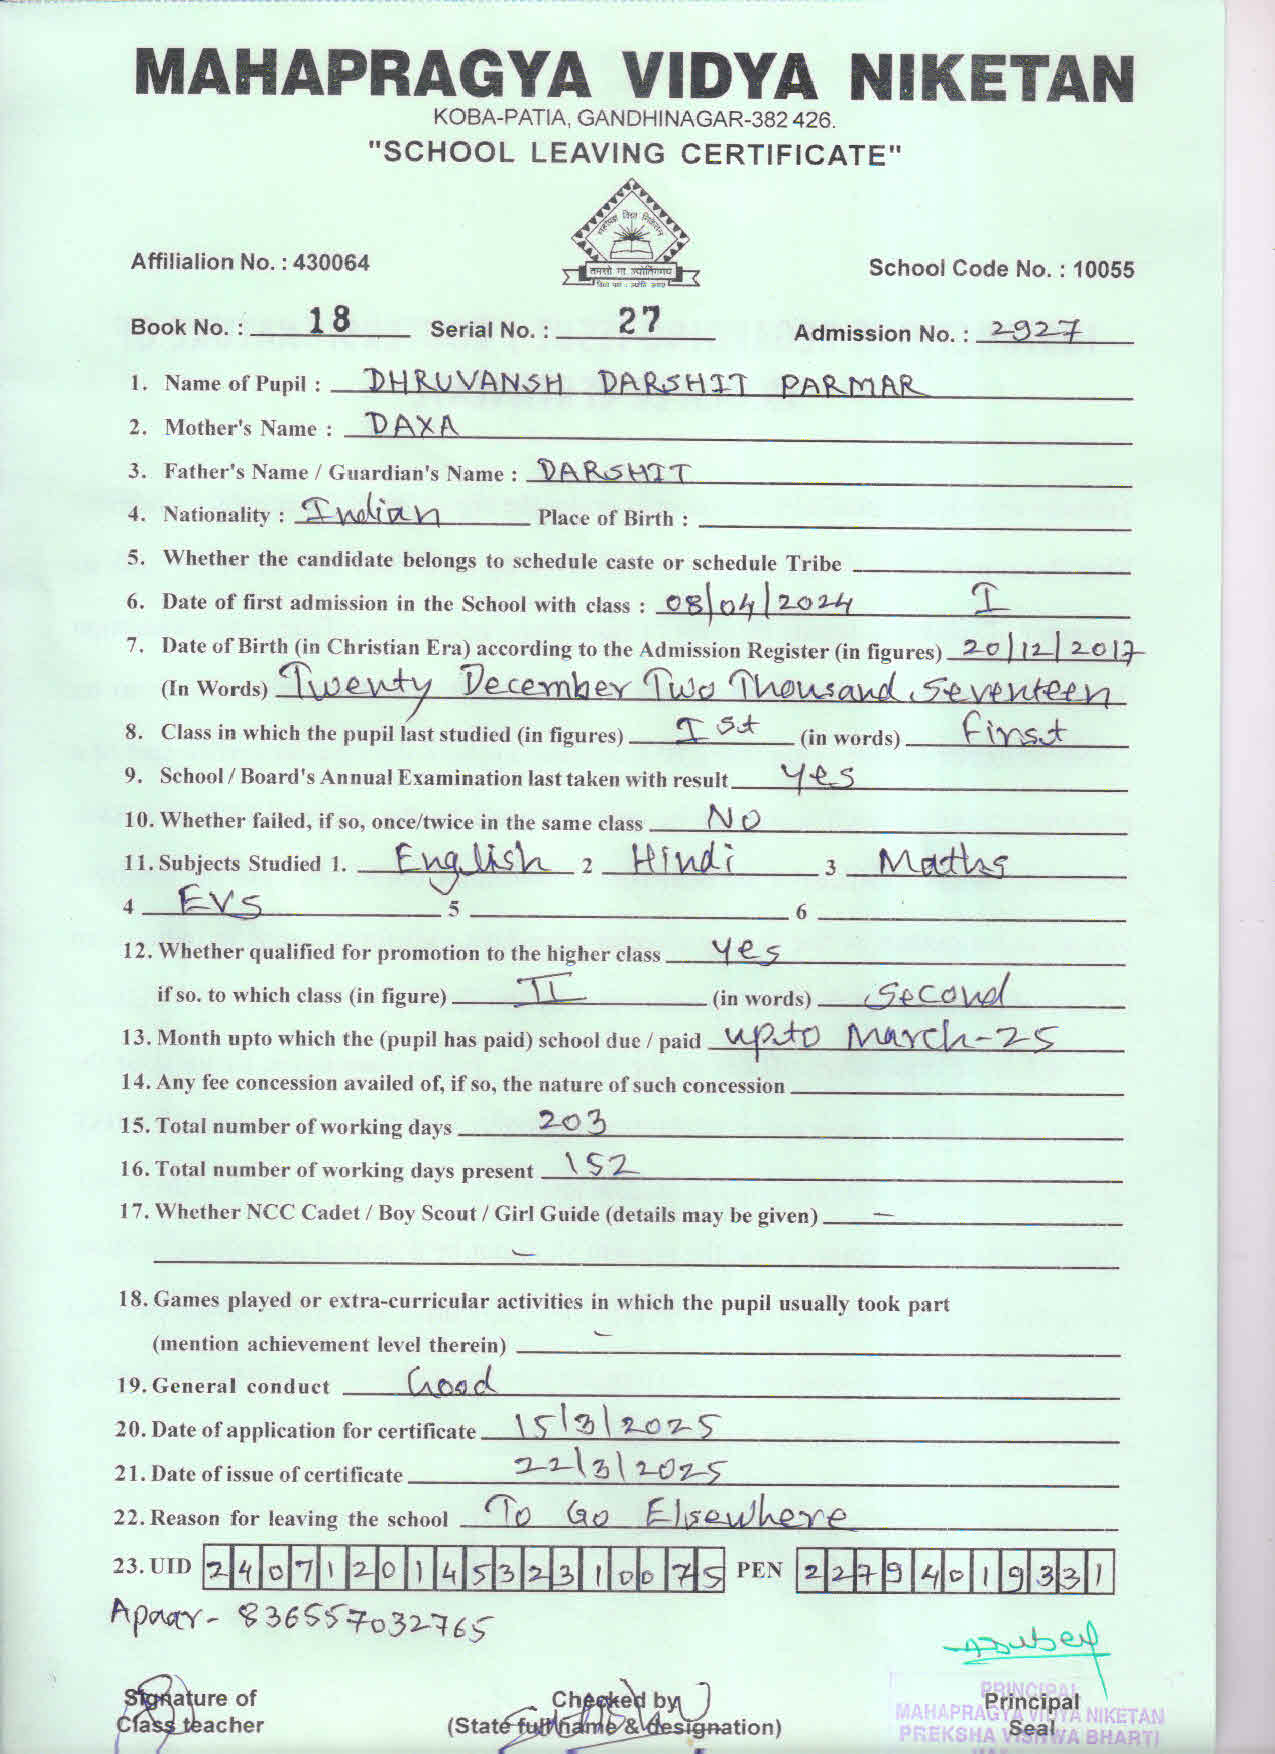 MAHAPRAGYA VIDYA NIKETAN
KOBA-PATIA, GANDHINAGAR-382 426.
"SCHOOL LEAVING CERTIFICATE"
महाप्रज्ञ विद्या निकेतन
तमसो मा ज्योतिर्गमय
Affilialion No. : 430064
School Code No. : 10055
Book No. : 18 Serial No. : 27 Admission No. : 2927
1. Name of Pupil : DHRUVANSH DARSHIT PARMAR
2. Mother's Name : DAXA
3. Father's Name / Guardian's Name : DARSHIT
4. Nationality : Indian Place of Birth :
5. Whether the candidate belongs to schedule caste or schedule Tribe
6. Date of first admission in the School with class : 08/04/2024 I
7. Date of Birth (in Christian Era) according to the Admission Register (in figures) 20/12/2017
(In Words) Twenty December Two Thousand Seventeen
8. Class in which the pupil last studied (in figures) Ist (in words) First
9. School / Board's Annual Examination last taken with result yes
10. Whether failed, if so, once/twice in the same class NO
11. Subjects Studied 1. English 2 Hindi 3 Maths
4 EVS 5 6
12. Whether qualified for promotion to the higher class yes
if so. to which class (in figure) II (in words) Second
13. Month upto which the (pupil has paid) school due / paid upto March-25
14. Any fee concession availed of, if so, the nature of such concession
15. Total number of working days 203
16. Total number of working days present 152
17. Whether NCC Cadet / Boy Scout / Girl Guide (details may be given) -
-
18. Games played or extra-curricular activities in which the pupil usually took part
(mention achievement level therein) -
19. General conduct Good
20. Date of application for certificate 15/3/2025
21. Date of issue of certificate 22/3/2025
22. Reason for leaving the school To Go Elsewhere
23. UID 240712014532310075 PEN 22794019331
Apaar- 836557032765
PRINCIPAL
Signature of Checked by Principal
MAHAPRAGYA VIDYA NIKETAN
Class teacher (State full name & designation) Seal
PREKSHA VISHWA BHARTI